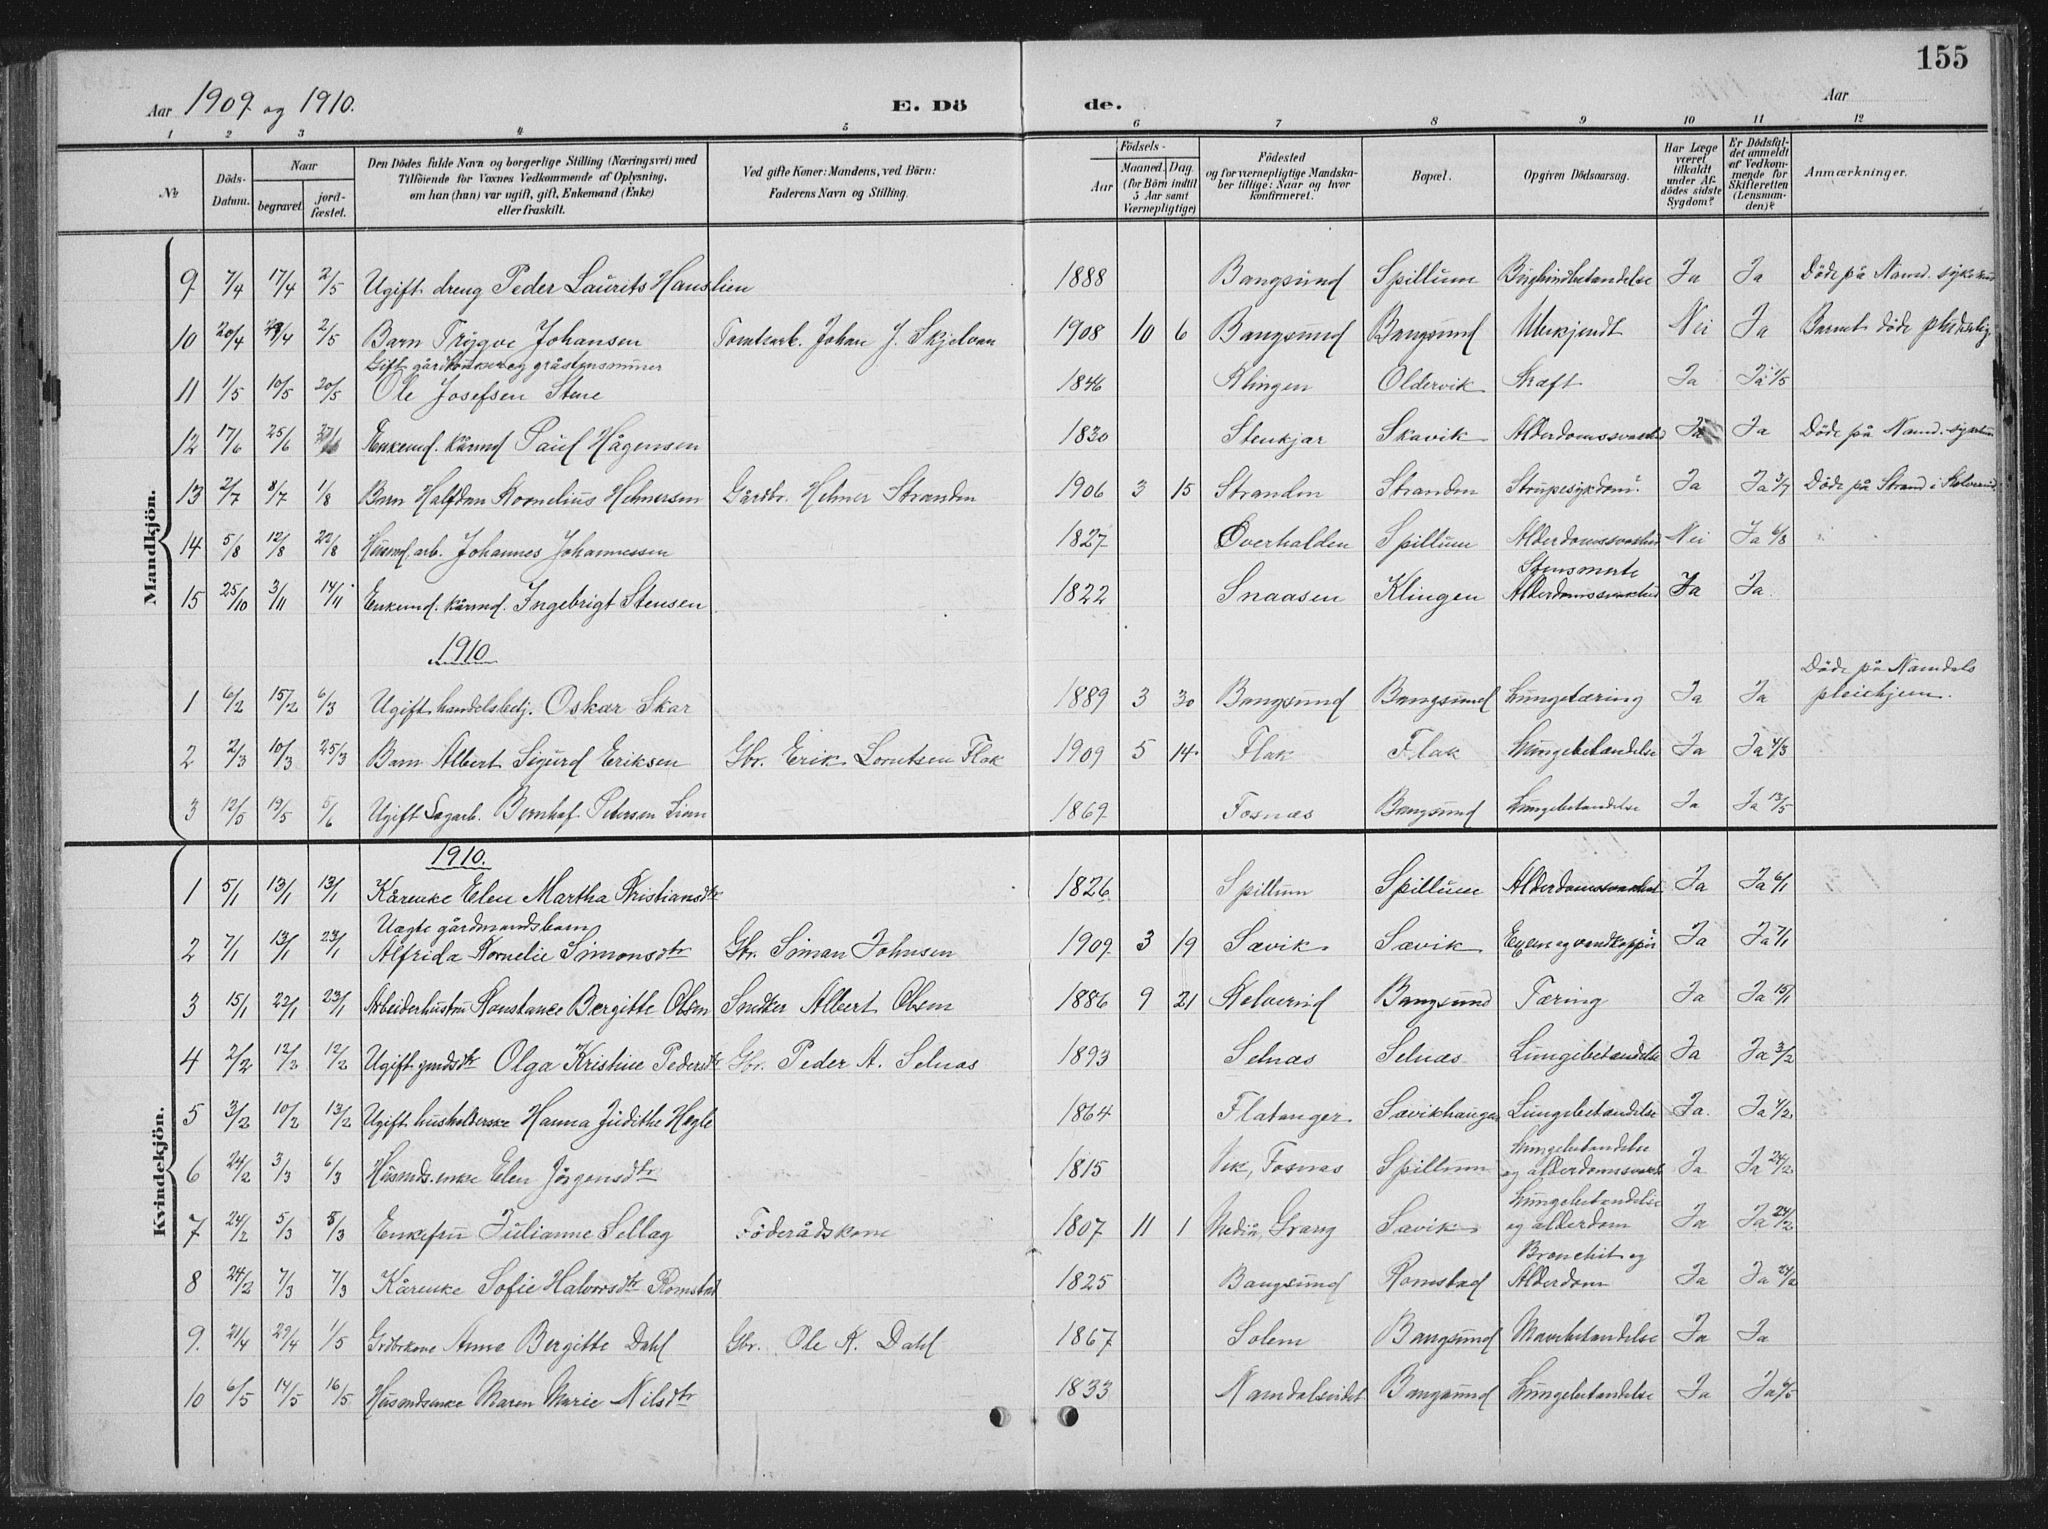 155
Aar 1909 og 1910.
E. Dö de.
Aar
1 2 3 4 5 6 7 8 9 10 11 12
№
Döds-Datum.
Naar
begravet. jordfæstet.
Den Dödes fulde Navn og borgerlige Stilling (Næringsvei) med Tilföiende for Voxnes Vedkommende af Oplysning, om han (hun) var ugift, gift, Enkemand (Enke) eller fraskilt.
Ved gifte Koner: Mandens, ved Börn: Faderens Navn og Stilling.
Födsels-
Aar Maaned. Dag.
(for Börn indtil 5 Aar samt Værnepligtige)
Födested og for værnepligtige Mandskaber tillige: Naar og hvor konfirmeret.
Bopæl.
Opgiven Dödsaarsag.
Har Læge været tilkaldt under Afdödes sidste Sygdom?
Er Dödsfaldet anmeldt af Vedkommende for Skifteretten (Lensmanden)?
Anmærkninger.
Mandkjön.
9 7/4 17/4 2/5 Ugift dreng Peder Laurits Hanslien 1888 Bangsund Spillum Ja Ja Döde på Namd.
10 20/4 2/5 Barn Trygve Johansen Tomtearb. Johan J. Skjelvan 1908 10 6 Bangsund Bangsund Ukjendt Nei Ja Barnet döde pludselig
Gift
11 1/5 10/5 20/5 Ole Josefsen Stene 1846 Klingen Oldervik Kræft Ja Ja 1/5
12 17/6 25/6 Enkemd. kårmd Paul Hågensen 1830 Stenkjær Skavik Alderdomssvaghed Ja Ja Döde på Namd.
13 2/7 8/7 1/8 Barn Halfdan Kornelius Helmersen Gårdbr. Helmer Stranden 1906 3 15 Stranden Stranden Strupesykdom Ja Ja 3/7 Döde på Strand i Kolvereid
14 5/8 12/8 22/8 Husmd. arb. Johannes Johannessen 1827 Overhalden Spillum Alderdomssvaghed Nei Ja 6/8
15 25/10 3/11 14/11 Enkemd. kårmd. Ingebrigt Stensen 1822 Snaasen Klingen Stensmerte Alderdomssvakhed Ja Ja
1910
1 6/2 15/2 6/3 Ugift handelsbetj. Oskar Skar 1889 3 30 Bangsund Bangsund Lungetæring Ja Ja Döde på Namdals pleiehjem.
2 2/3 10/3 25/3 Barn Albert Sigurd Eriksen Gbr. Erik Lorntsen Flak 1909 5 14 Flak Flak Lungebetændelse Ja Ja 4/3
3 12/5 19/5 5/6 Ugift Sagarb. Bernhof Petersen Lien 1869 Fosnæs Bangsund Lungebetændelse Ja Ja 13/5
Kvindekjön.
1910.
1 5/1 13/1 13/1 Kårenke Elen Martha Kristiansdtr 1826 Spillum Spillum Alderdomssvakhet Ja Ja 6/1
Uegte gårdmandsbarn
2 7/1 13/1 23/1 Alfrida Kornelie Simonsdtr Gbr. Simon Johnsen 1909 3 19 Sævik Sævik Exem og vandkopper Ja Ja 7/1
3 15/1 22/1 23/1 Arbeiderhustru Konstance Bergitte Olsen Snedker Albert Olsen 1886 9 21 Kolvereid Bangsund Tæring Ja Ja 15/1
4 2/2 12/2 12/2 Ugift gmdsdtr Olga Kristine Pedersdtr Gbr. Peder A. Selnæs 1893 Selnæs Selnæs Lungebetændelse Ja Ja 3/2
5 3/2 10/2 13/2 Ugift husholderske Hanna Judithe Hegle 1864 Flatanger Sævikhaugen Lungebetændelse Ja Ja 4/2
6 24/2 3/3 6/3 Husmds.enke Elen Jörgensdtr 1815 Vik, Fosnæs Spillum Lungebetændelse og alderdomssvakh. Ja Ja 24/2
7 24/2 5/3 5/3 Enkefru Julianne Sellæg Föderådskone 1807 11 1 Grong Sævik Lungebetændelse og alderdom Ja Ja 24/2
8 24/2 7/3 7/3 Kårenke Sofie Halvorsdtr Romstad 1825 Bangsund Romstad Bronchit og Alderdom Ja Ja 24/2
9 21/4 29/4 1/5 Grdbrkone Anne Bergitte Dahl Gbr. Ole K. Dahl 1867 Solem Bangsund Mavebetændelse Ja Ja
10 6/5 14/5 16/5 Husmdsenke Maren Marie Nilsdtr 1833 Namdalseidet Bangsund Lungebetændelse Ja Ja 6/5